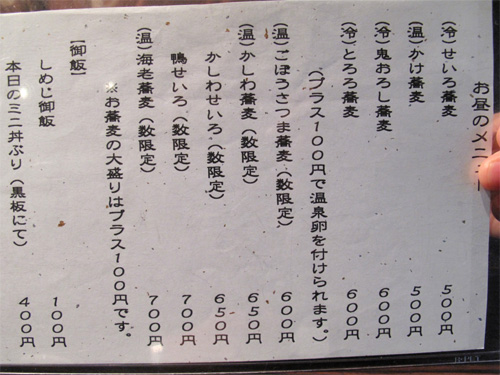 お昼のメニュー
（冷）せいろ蕎麦 ５００円
（温）かけ蕎麦 ５００円
（冷）鬼おろし蕎麦 ６００円
（冷）とろろ蕎麦 ６００円
（プラス１００円で温泉卵を付けられます。）
（温）ごぼうさつま蕎麦（数限定） ６００円
（温）かしわ蕎麦（数限定） ６５０円
かしわせいろ（数限定） ６５０円
鴨せいろ（数限定） ７００円
（温）海老蕎麦（数限定） ７００円
※お蕎麦の大盛りはプラス１００円です。
【御飯】
しめじ御飯 １００円
本日のミニ丼ぶり（黒板にて） ４００円